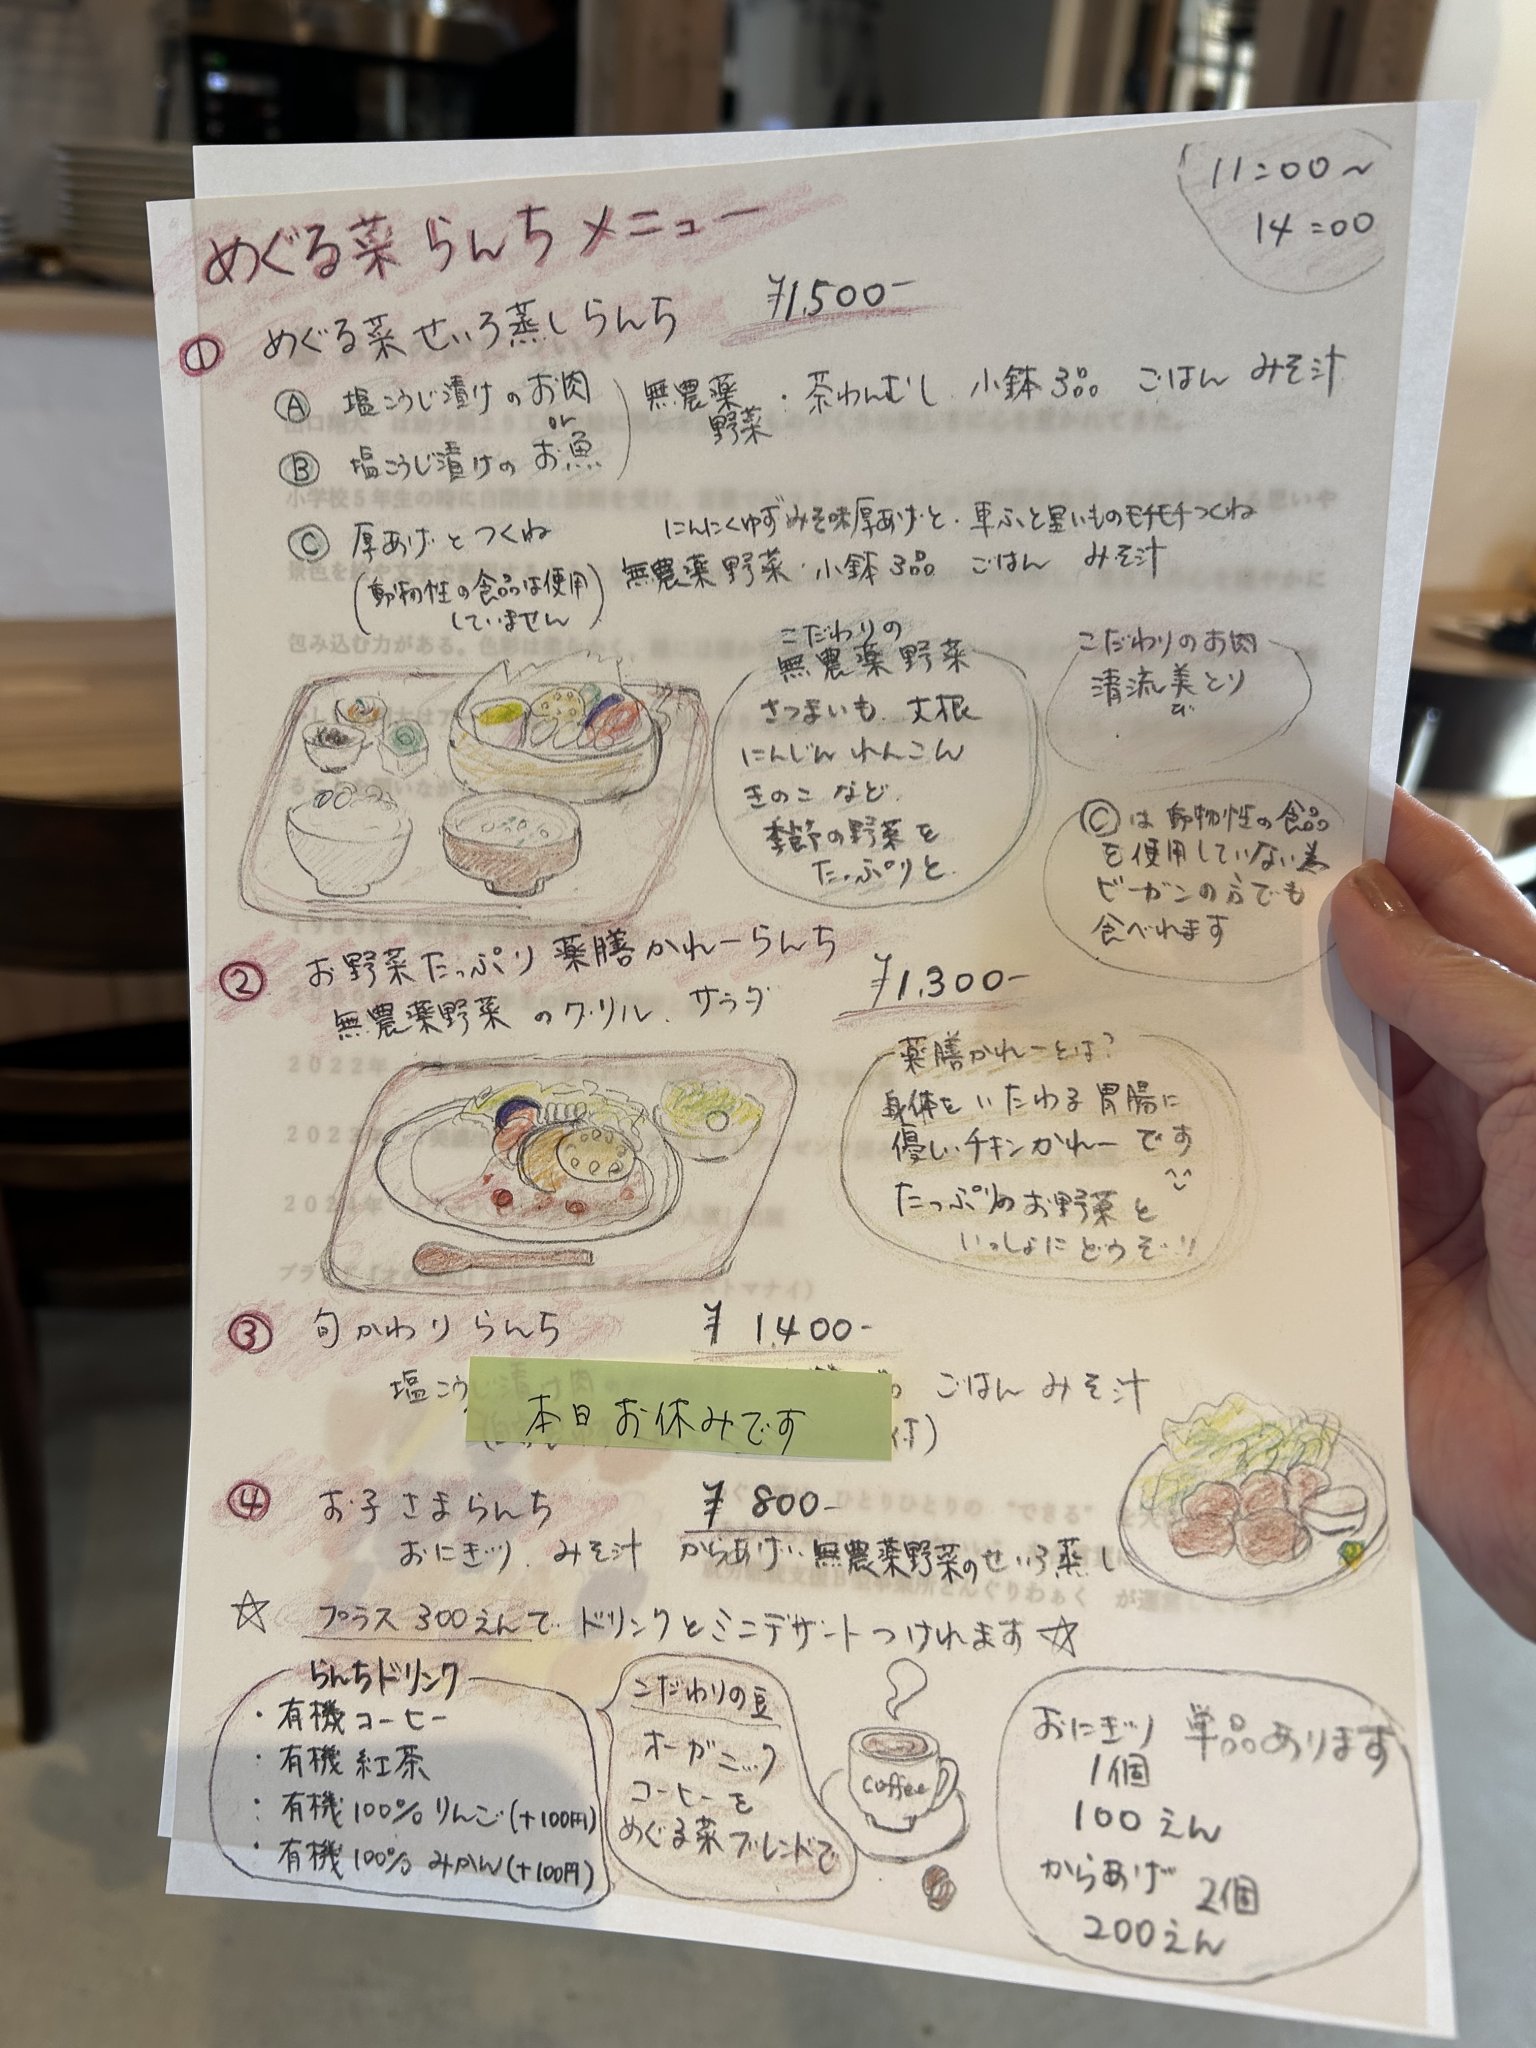 11:00～
14:00
めぐる菜 らんち メニュー
① めぐる菜 せいろ蒸し らんち ¥1,500-
Ⓐ 塩こうじ漬けのお肉
or
Ⓑ 塩こうじ漬けの お魚
無農薬野菜・茶わんむし 小鉢3品 ごはん みそ汁
Ⓒ 厚あげとつくね
(動物性の食品は使用
していません)
にんにくゆずみそ味厚あげと、車ふと里いものモチモチつくね
無農薬野菜・小鉢3品 ごはん みそ汁
こだわりの
無農薬野菜
さつまいも、大根
にんじん れんこん
きのこ など
季節の野菜を
たっぷりと
こだわりのお肉
清流美とり
び
Ⓒは動物性の食品
を使用していない為
ビーガンの方でも
食べれます
② お野菜たっぷり 薬膳かれーらんち ¥1,300-
無農薬野菜のグリル、サラダ
薬膳かれーとは?
身体をいたわる胃腸に
優しいチキンかれーです
たっぷりのお野菜と
いっしょにどうぞ!!
③ 旬かわりらんち ¥1,400-
塩こうじ漬け肉の ごはん みそ汁
付)
本日お休みです
④ お子さまらんち ¥800-
おにぎり、みそ汁 からあげ、無農薬野菜のせいろ蒸し
☆ プラス300えんで ドリンクとミニデザートつけれます☆
らんちドリンク
・有機コーヒー
・有機紅茶
・有機100%りんご(+100円)
・有機100%みかん(+100円)
こだわりの豆
オーガニック
コーヒーを
めぐる菜ブレンドで
coffee
おにぎり 単品あります
1個
100えん
からあげ 2個
200えん